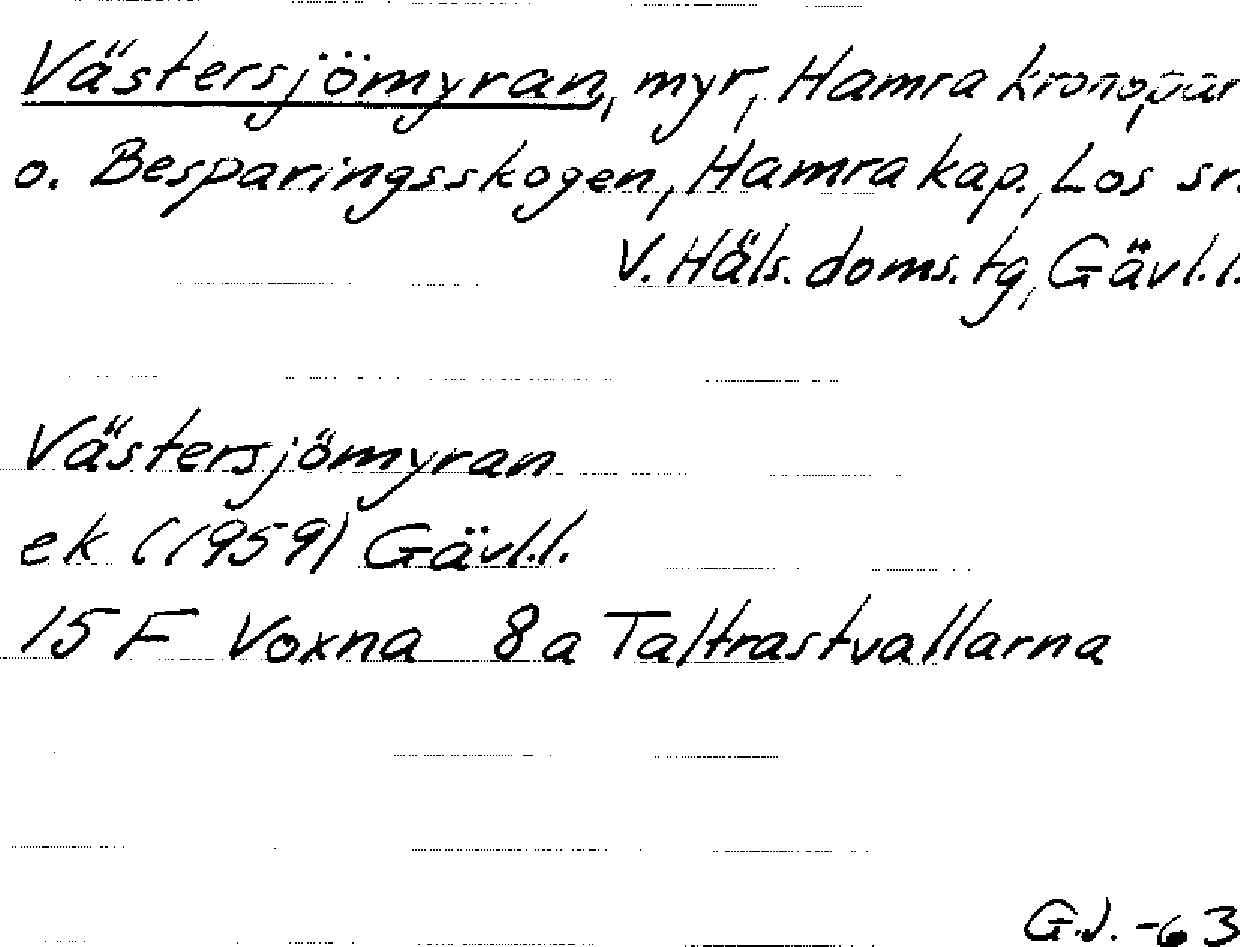 Västersjömyran, myr, Hamra kronopar
o. Besparingsskogen, Hamra kap., Los sn.
V. Häls. doms. tg, Gävl.l.
Västersjömyran
ek (1959) Gävl.l.
15 F Voxna 8a Taltrastvallarna
G.J. -63